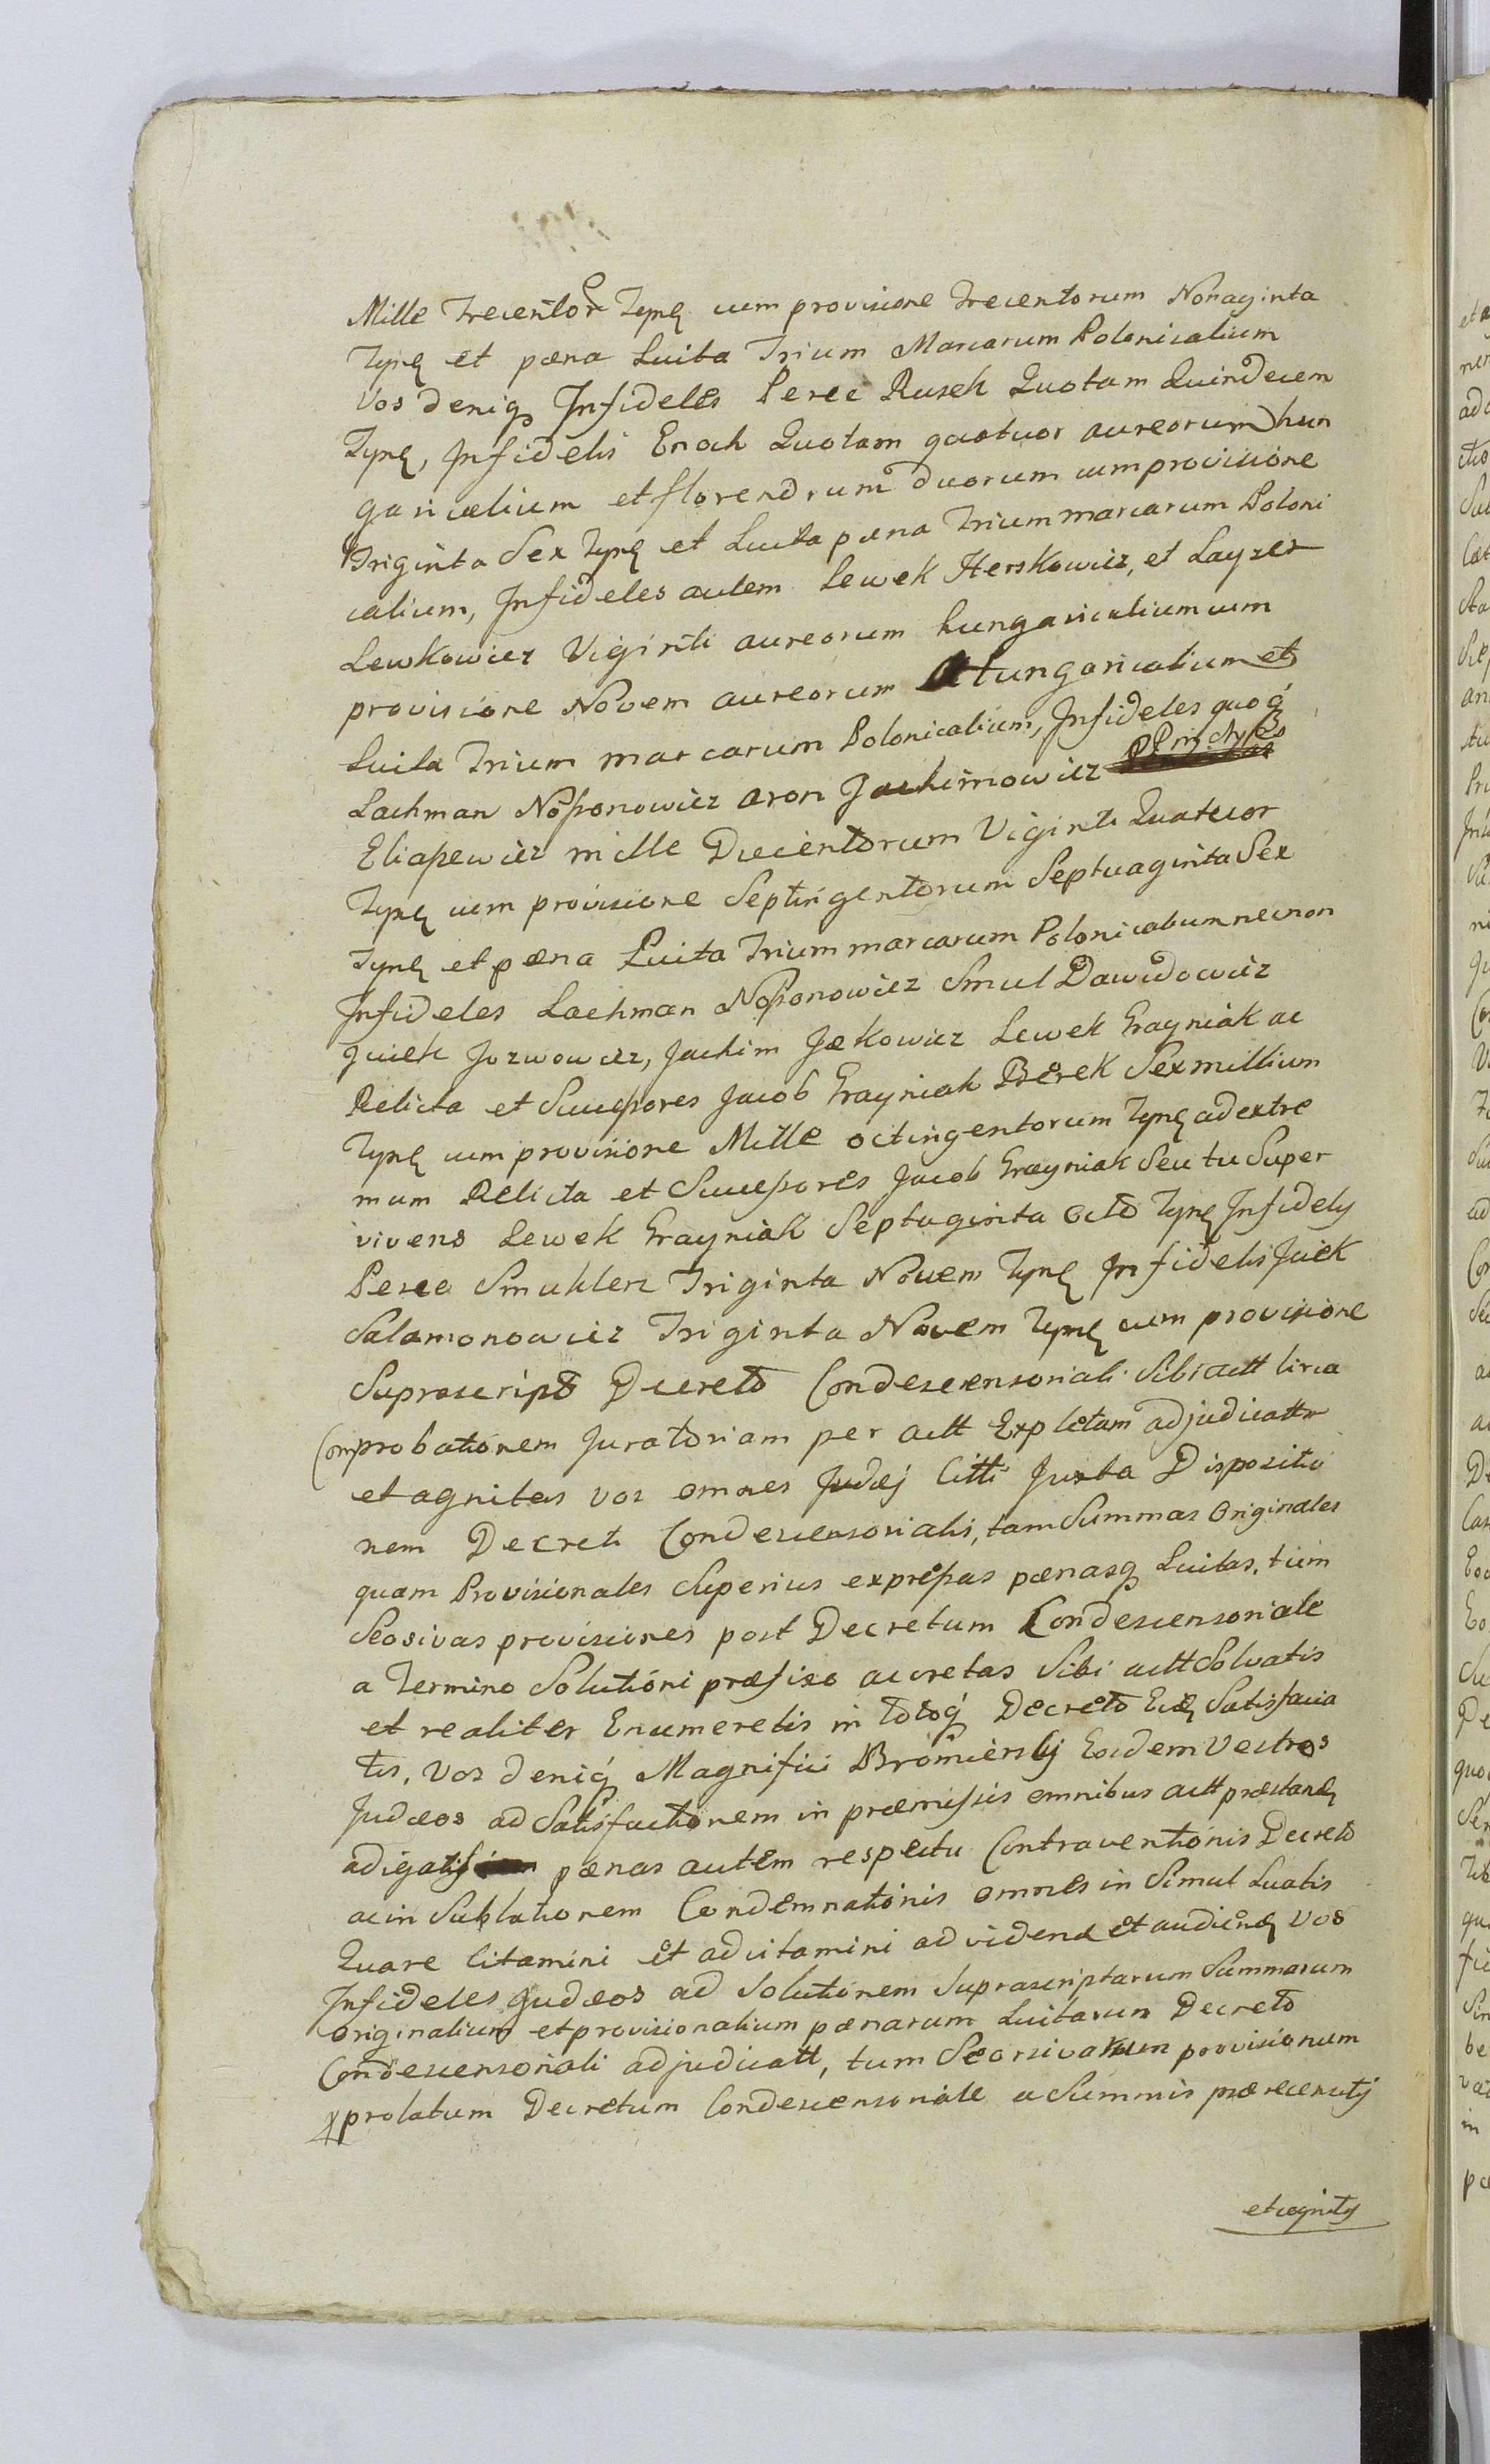 Mille Trecentor Tynę cum provisione Trecentorum Nonaginta
Tynę et pæna Luita Trium Marcarum Polonicalium
Vos deniq Infideles Perec Rusek Quotam Quindecem
Tynę, Infidelis Enoch Quotam quotuor aureorum hun
garicalium et florendrum duorum cum provisione
Triginta Sex Tynę et Luita pæna Trium marcarum Poloni
calium, Infideles autem Lewek Herskowicz, et Layzer
Lewkowicz Viginti aureorum hungaricalium cum
provisione Novem aureorum Hungaricalium et
Luita Trium marcarum Polonicalium, Infideles quoq
Lachman Nossonowicz Aron Jachimowicz
Eliaszewicz mille Ducentorum Viginti Quatuor
Tynę cum provisione Septingentorum Septuaginta Sex
Tynę et pæna Luita Trium marcarum Polonicalium necnon
Infideles Lachman Nossonowicz Smul Dawidowicz
Juiek Jozwowicz, Jachim Jækowicz Lewek Grayniak ac
Relicta et Successores Jacob Grayniak Berek Sex millium
Tynę cum provisione Mille octingentorum Tynę ad extre
mum Relicta et Successores Jacob Grayniak Seu tu Super
vivens Lewek Grayniak Septuginta octo Tynę Infidelis
Perec Smuklerz Triginta Novem Tynę Infidelis Juiek
Salamonowicz Triginta Novem Tynę cum provisione
Suprascripto Decreto Condescensoriali Sibi actt Circa
Comprobationem Juratoriam per actt Expletam adjudicattas
et agnitas vos omnes Judæj Citti Juxta Dispositio
nem Decreti Condescensorialis, tam Summas Originales
quam Provisionales Superius expressas pænasq Luitas, tum
Seosivas provisiones post Decretum Condescensoriale
a Termino Solutioni præfixo accretas Sibi actt Solvatis
et realiter Enumeretis in totoq Decreto Satisfacia
tis, Vos deniq Magnifici Bromierscij Eosdem Vestros
Judæos ad Satisfactionem in præmissis omnibus actt præstandę
adigatis pænas autem respectu Contraventionis Decreto
ac in Sublationem Condemnationis omnes in Simul Luatis
Quare Citamini et adcitamini ad videnđ et audiendę vos
Infideles Judæos ad Solutionem Suprascriptarum Summarum
originalium et provisionalium pænarum Luitarum Decreto
Condescensoriali adjudicatt, tum Seorsivarum provisionum
prolatum Decretum Condescensoriale a Summis præcensitis
et agnitis